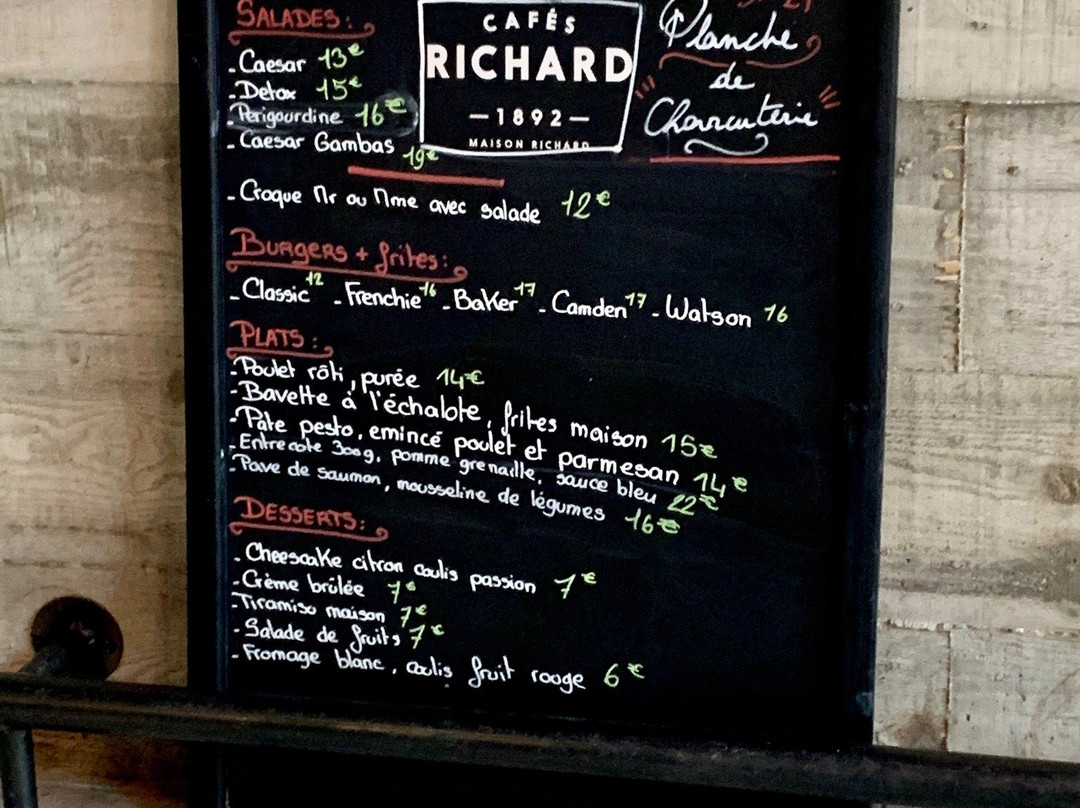 SALADES:
- Caesar 13€
- Detox 15€
- Périgourdine 16€
- Caesar Gambas 19€
CAFÉS
RICHARD
—1892—
MAISON RICHARD
Planche
de
Charcuterie
- Croque Mr ou Mme avec salade 12€
BURGERS + frites:
- Classic 12 - Frenchie 16 - Baker 17 - Camden 17 - Watson 16
PLATS:
- Poulet rôti, purée 14€
- Bavette à l'échalote, frites maison 15€
- Pâte pesto, emincé poulet et parmesan 14€
- Entrecote 300g, pomme grenaille, sauce bleu 22€
- Pave de saumon, mousseline de légumes 16€
DESSERTS:
- Cheescake citron coulis passion 7€
- Crème brûlée 7€
- Tiramisu maison 7€
- Salade de fruits 7€
- Fromage blanc, coulis fruit rouge 6€